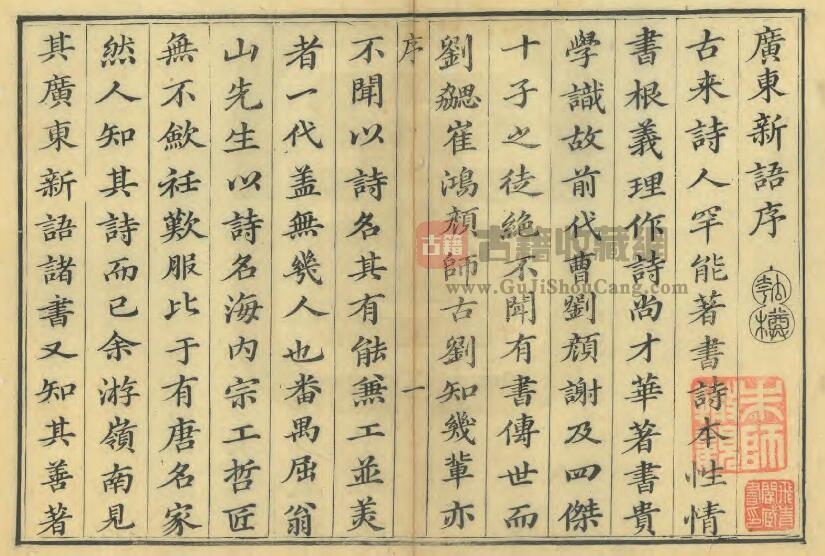 廣東新語序
古来詩人罕能著書詩本性情
書根義理作詩尚才華著書貴
學識故前代曹劉顔謝及四傑
十子之徒絶不聞有書傳世而
劉勰崔鴻顔師古劉知幾輩亦
序 一
不聞以詩名其有能兼工並美
者一代盖無幾人也番禺屈翁
山先生以詩名海内宗工哲匠
無不歛衽歎服比于有唐名家
然人知其詩而已余游嶺南見
其廣東新語諸書又知其善著
朱師轍觀
飛青閣藏書印
古籍
古籍收藏網
www.GuJiShouCang.com